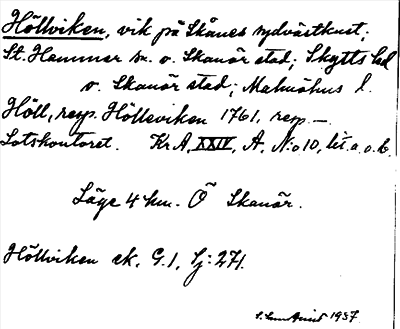 Höllviken, vik på Skånes sydvästkust;
St. Hammar sn. o. Skanör stad; Skytts hd
o. Skanör stad; Malmöhus l.
Höll, resp. Hölleviken 1761, resp. —
Lotskontoret. Kr A, XXIV, A, N:o 10, lit. a. o. b.
Läge 4 km. Ö Skanör.
Höllviken ek. G.1, Sj: 271.
1937